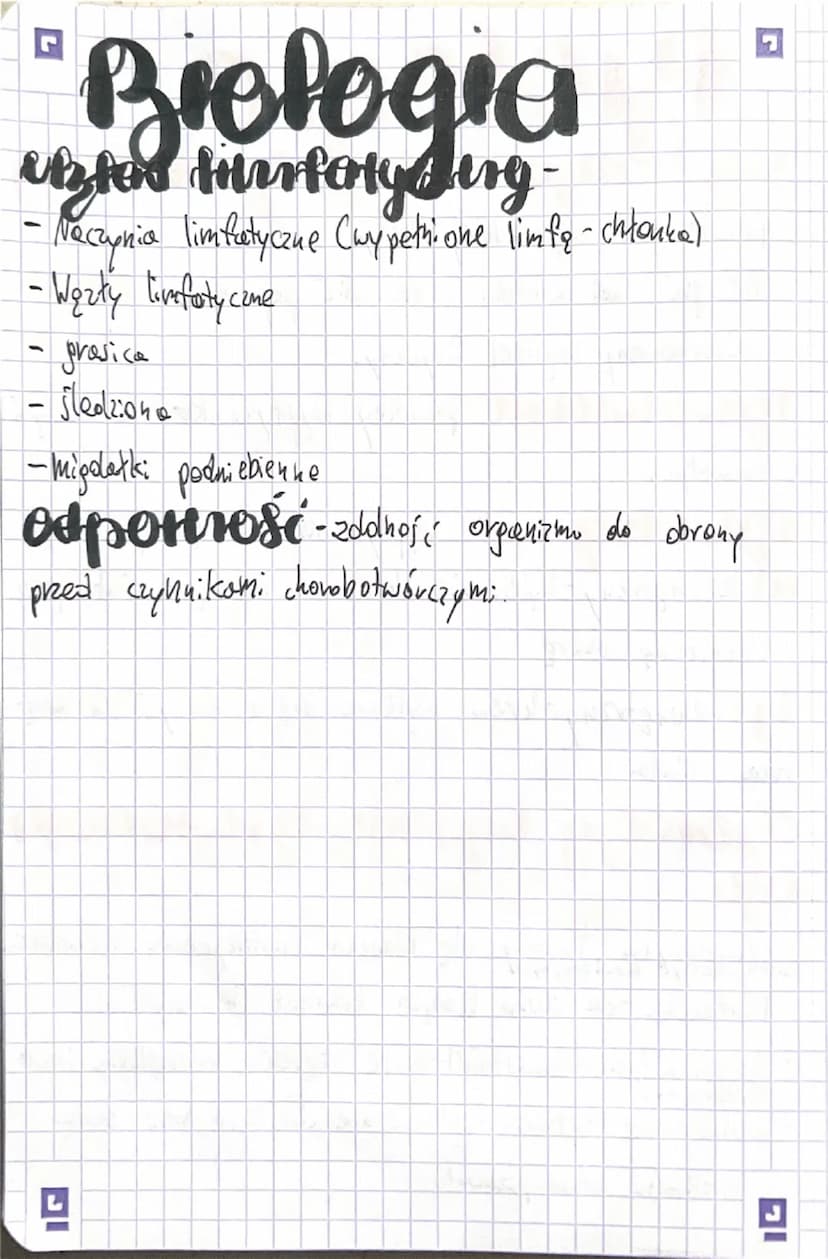 Biologia
układ limfatyczny -
- Naczynia limfatyczne (wypełnione limfą - chłonka)
- Węzły limfatyczne
- grasica
- śledziona
- migdałki podniebienne
odporność - zdolność organizmu do obrony
przed czynnikami chorobotwórczymi.